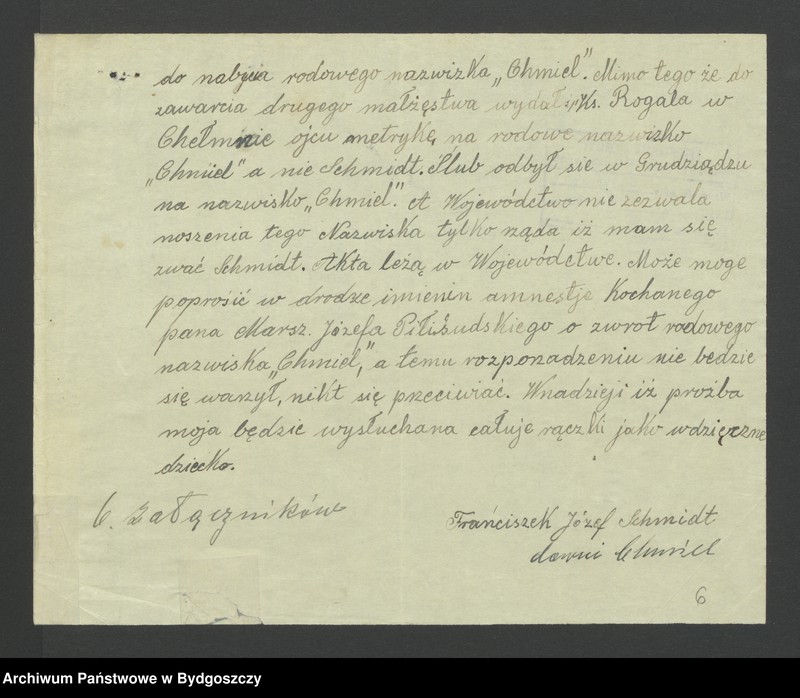 do nabycia rodowego nazwizka „Chmiel". Mimo tego że do
zawarcia drugego małżęstwa wydał Ks. Rogala w
Chełmnie ojcu metrykę na rodowe nazwizko
„Chmiel" a nie Schmidt. Ślub odbył sie w Grudziądzu
na nazwisko „Chmiel". A Wojewódctwo nie zezwala
noszenia tego Nazwiska tylko rząda iż mam się
zwać Schmidt. Akta leżą w Wojewódctwe. Może moge
poprosić w drodze imienin amnestje Kochanego
pana Marsz. Józefa Piłisudskiego o zwrot rodowego
nazwiska „Chmiel", a temu rozponadzeniu nie będzie
się warzył, nikt się przeciwiać. Wnadzieji iż proźba
moja będzie wysłuchana całuje rączki jako wdzięczne
dziecko.
6. załączników
Frańciszek Józef Schmidt
dawni Chmiel
6
Archiwum Państwowe w Bydgoszczy